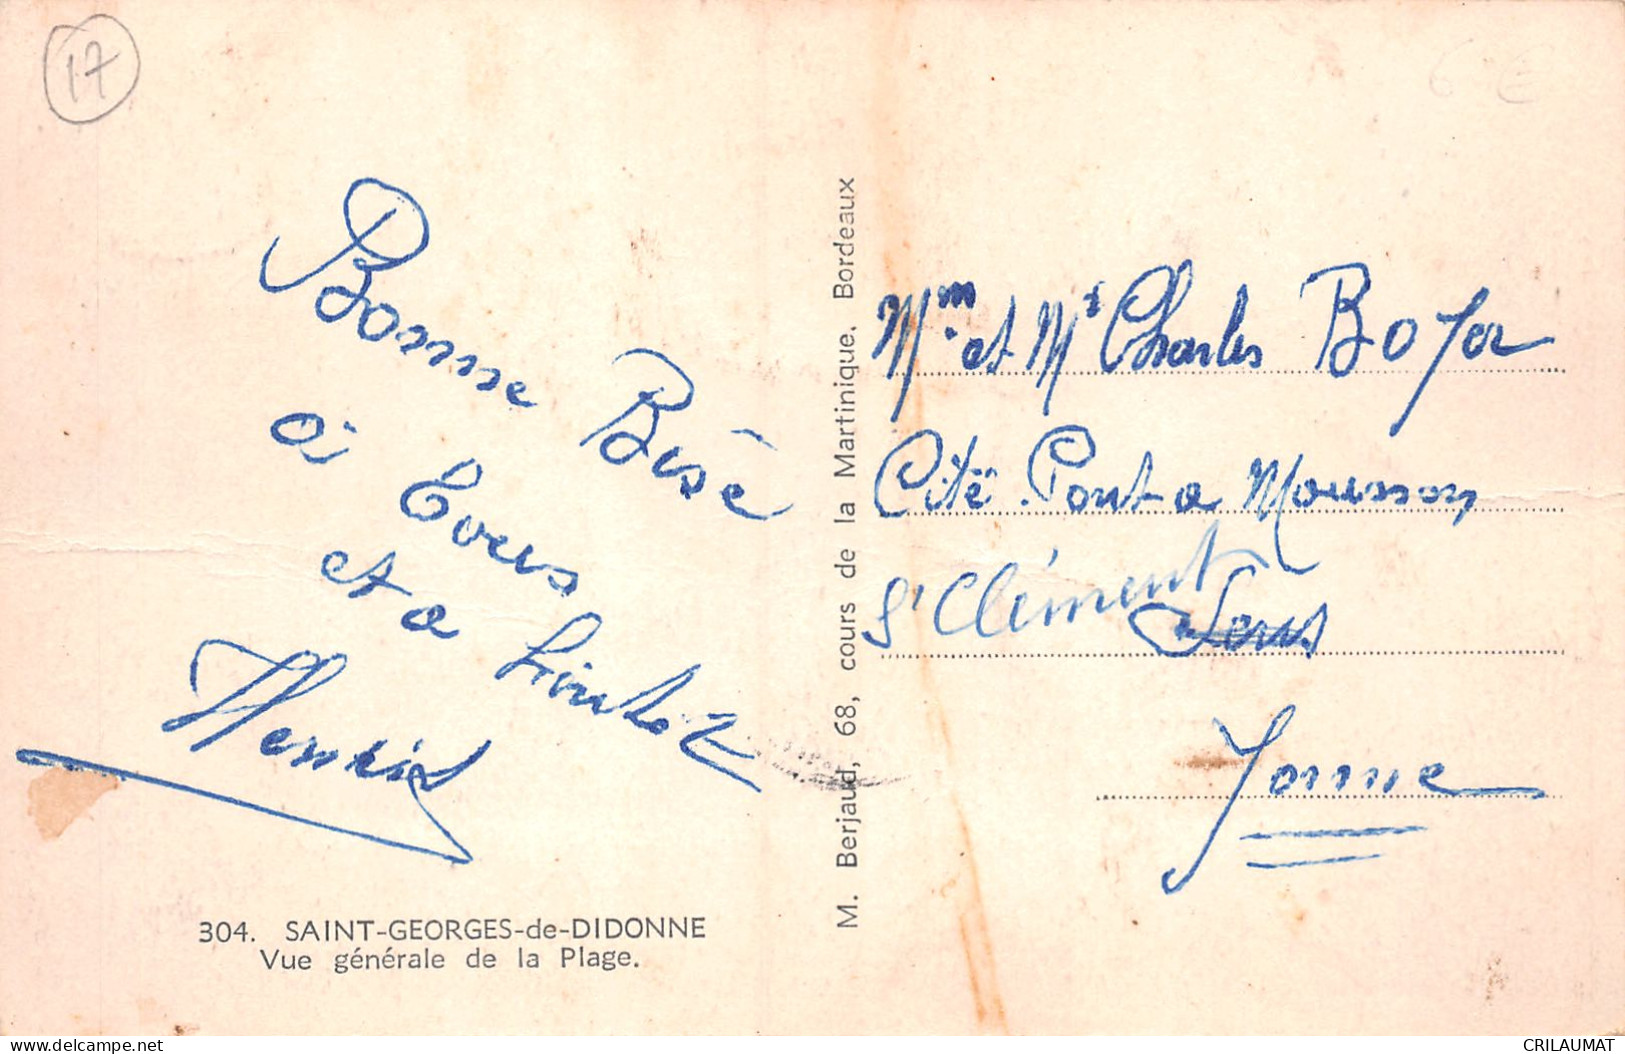 17
6 €
Bonne Bisé
a Tous
et a
Henri
304. SAINT-GEORGES-de-DIDONNE
Vue générale de la Plage.
M. Berjaud, 68, cours de la Martinique, Bordeaux
Mm et Mr Charles Boyer
Cité Pont a Mousson
St Clément Sens
Yonne
www.delcampe.net
CRILAUMAT